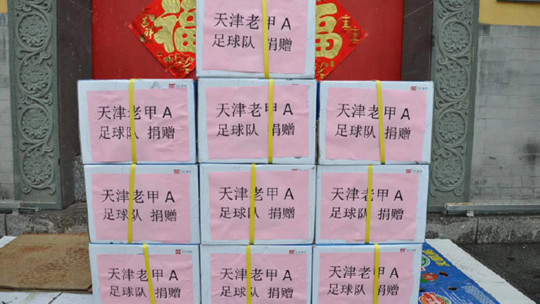 福
福
天津老甲A
足球队 捐赠
天津老甲A
足球队 捐赠
天津老甲A
足球队 捐赠
天津老甲A
足球队 捐赠
天津老甲A
足球队 捐赠
天津老甲A
足球队 捐赠
天津老甲A
足球队 捐赠
天津老甲A
足球队 捐赠
天津老甲A
足球队 捐赠
天津老甲A
足球队 捐赠